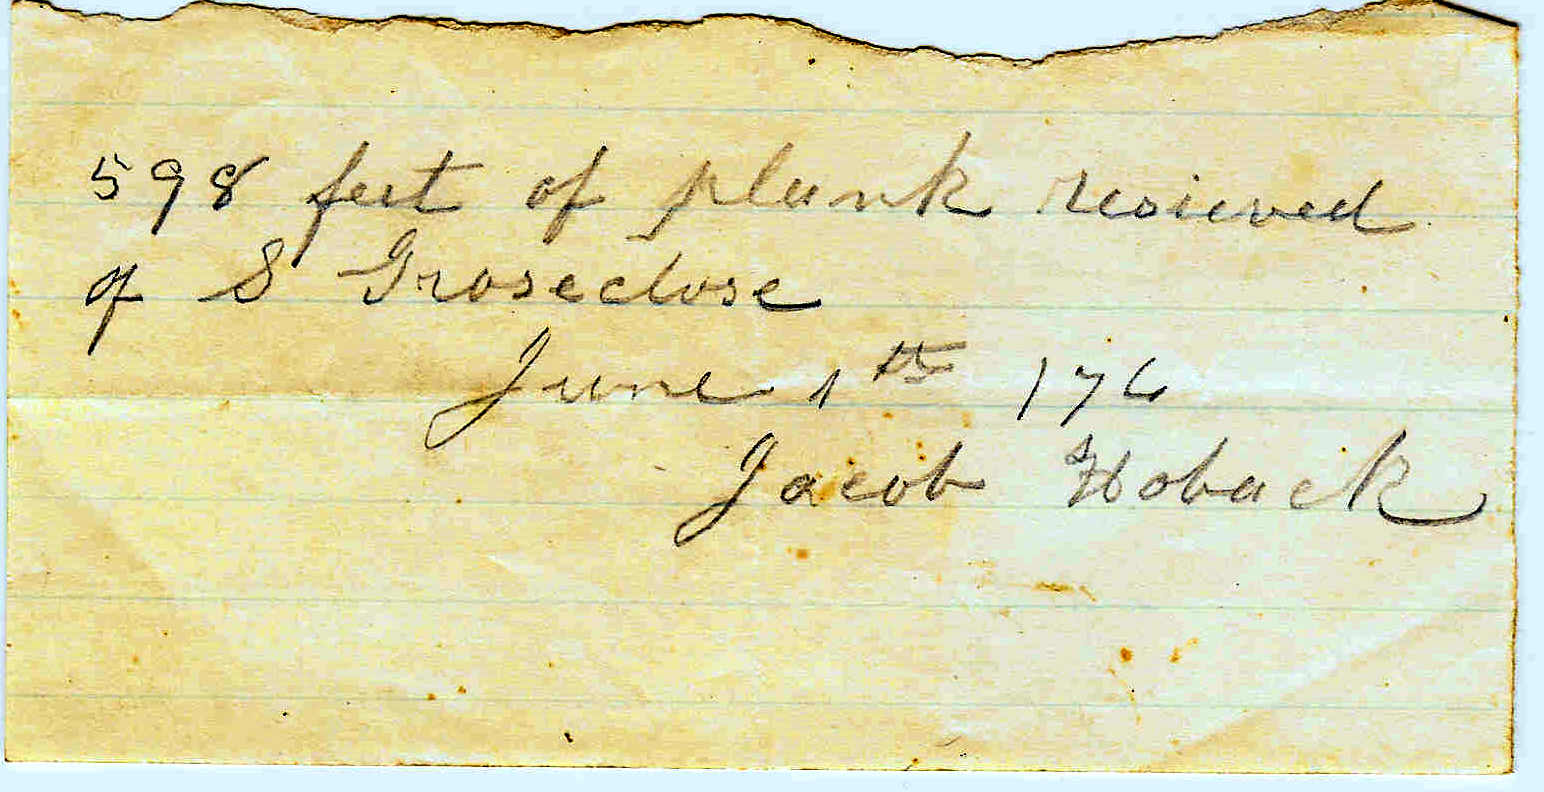 598 feet of plank resieved
of S Groseclose
June 1th 176
Jacob Hoback